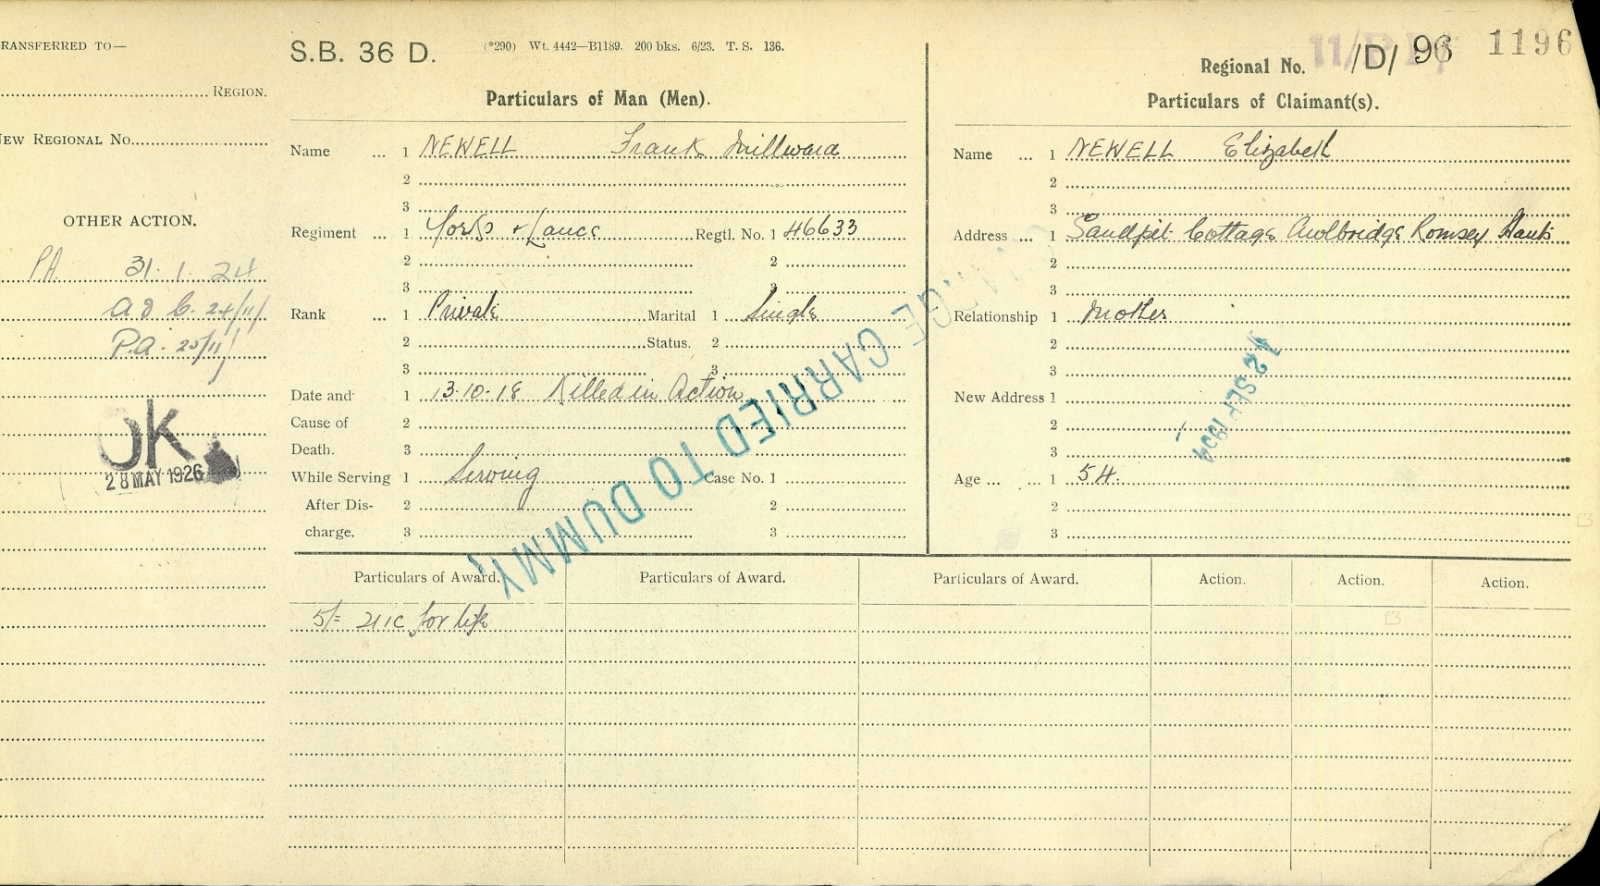 TRANSFERRED TO—
REGION.
NEW REGIONAL No.
OTHER ACTION.
PA 31. 1. 24
P.A. 25/11/
OK
28 MAY 1926
S.B. 36 D. (*290) Wt. 4442—B1189. 200 bks. 6/23. T. S. 136.
Particulars of Man (Men).
Name ... 1 NEWELL Frank Millward
2
3
Regiment ... 1 Yorks & Lancs Regtl. No. 1 46633
2 2
3 3
Rank ... 1 Private Marital 1 Single
2 Status. 2
3 3
Date and 1 13-10-18 Killed in Action
Cause of 2
Death. 3
While Serving 1 Serving Case No. 1
After Dis- 2 2
charge. 3 3
CARRIED TO DUMMY.
Regional No. 11/D/ 96 1196
Particulars of Claimant(s).
Name ... 1 NEWELL Elizabeth
2
3
Address ... 1 Sandpit Cottage Awlbridge Romsey Hants
2
3
Relationship 1 Mother
2
3
12 SEP 1924
New Address 1
2
3
Age ... ... 1 54.
2
3
Particulars of Award. Particulars of Award. Particulars of Award. Action. Action. Action.
5/= 21c for life